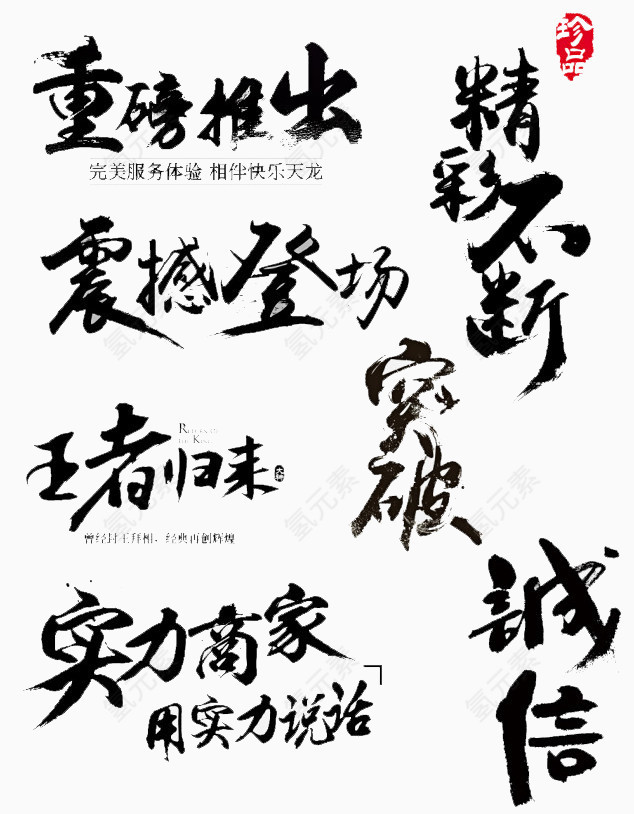 珍品
重磅推出
完美服务体验 相伴快乐天龙
精彩不断
震撼登场
突破
RETURN OF
THE KING
王者归来
曾经封王拜相，经典再创辉煌
誠信
实力商家
用实力说话
氢元素